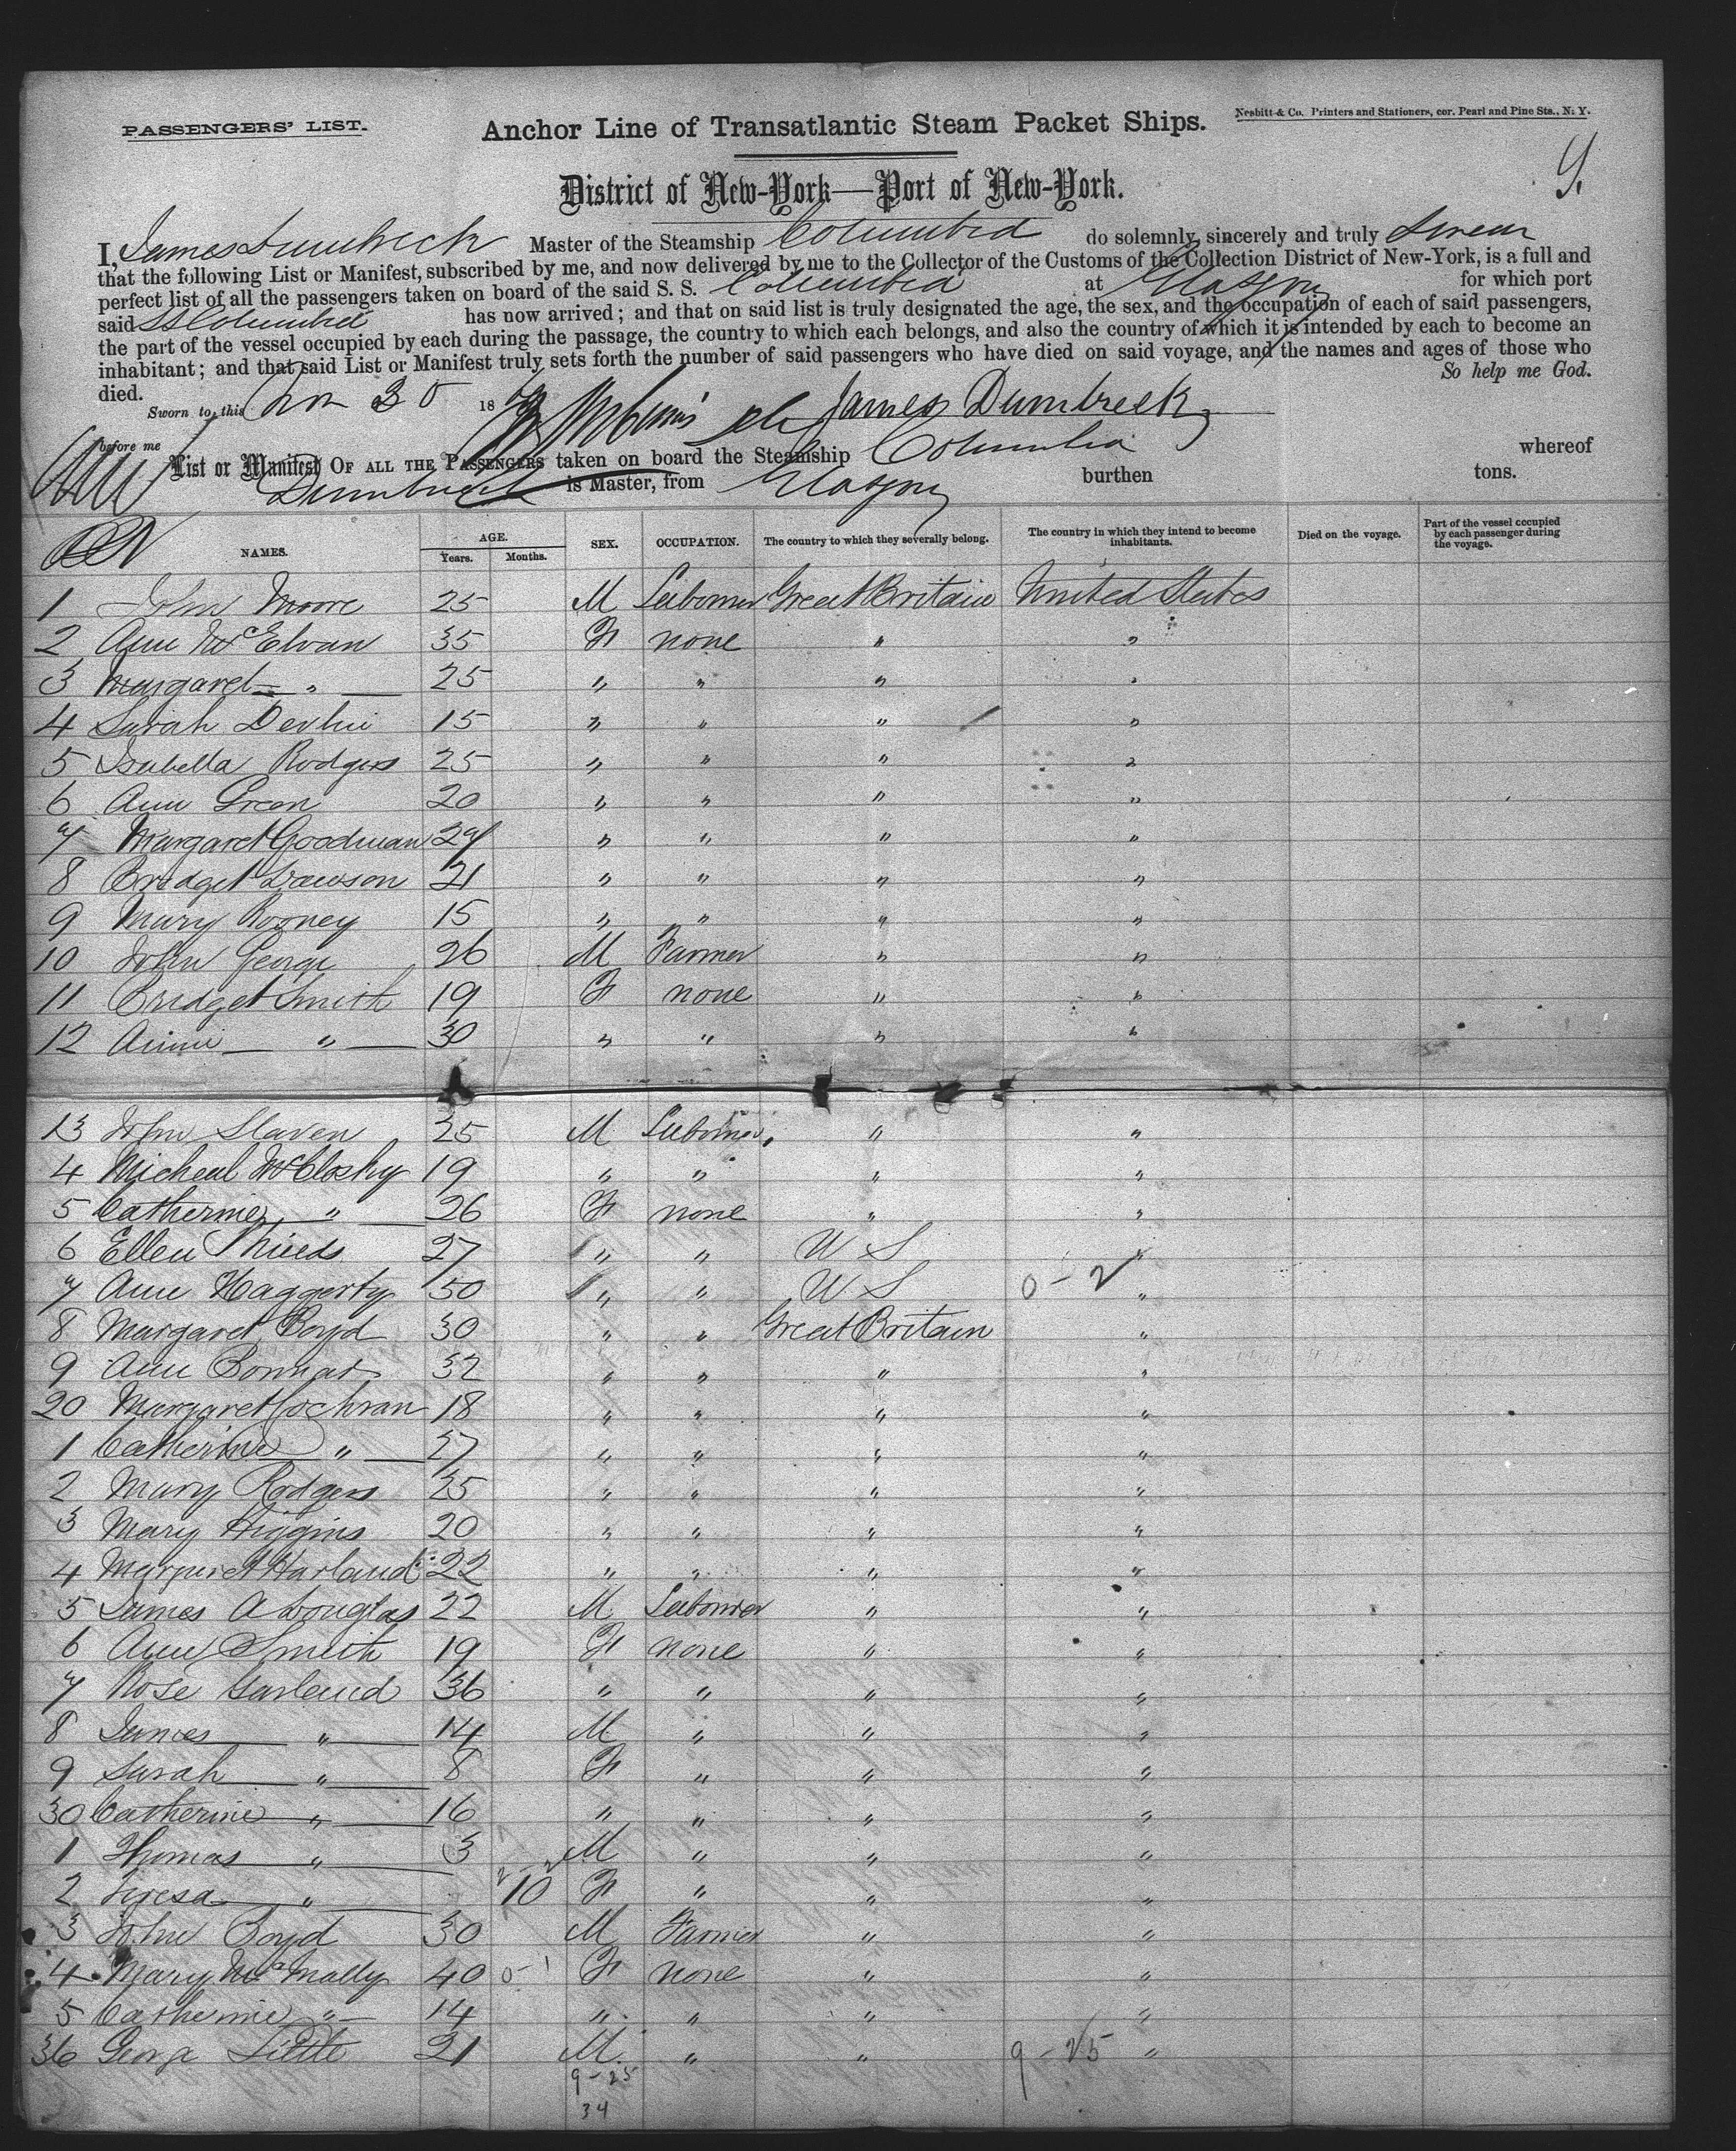 PASSENGERS' LIST.
Anchor Line of Transatlantic Steam Packet Ships.
Nesbitt & Co. Printers and Stationers, cor. Pearl and Pine Sts., N. Y.
District of New-York—Port of New-York.
I, James Dumbreck Master of the Steamship Columbia do solemnly, sincerely and truly swear
that the following List or Manifest, subscribed by me, and now delivered by me to the Collector of the Customs of the Collection District of New-York, is a full and
perfect list of all the passengers taken on board of the said S. S. Columbia at Glasgow for which port
said SS Columbia has now arrived; and that on said list is truly designated the age, the sex, and the occupation of each of said passengers,
the part of the vessel occupied by each during the passage, the country to which each belongs, and also the country of which it is intended by each to become an
inhabitant; and that said List or Manifest truly sets forth the number of said passengers who have died on said voyage, and the names and ages of those who
died. So help me God.
Sworn to this Nov 30 18 James Dumbreck
before me
List or Manifest OF ALL THE PASSENGERS taken on board the Steamship Columbia whereof
Dumbreck is Master, from Glasgow burthen tons.
NAMES. AGE. Years. Months. SEX. OCCUPATION. The country to which they severally belong. The country in which they intend to become inhabitants. Died on the voyage. Part of the vessel occupied by each passenger during the voyage.
1 John Moore 25 M Labourer Great Britain United States
2 Ann McElvan 35 F none " "
3 Margaret " 25 " " " "
4 Sarah Devlin 15 " " " "
5 Isabella Rodgers 25 " " " "
6 Ann Green 20 " " " "
7 Margaret Goodman 24 " " " "
8 Bridget Lawson 21 " " " "
9 Mary Rooney 15 " " " "
10 John George 26 M Farmer " "
11 Bridget Smith 19 F none " "
12 Annie " 30 " " " "
13 John Slaven 25 M Labourer " "
4 Micheal McClosky 19 " " " "
5 Catherine " 26 F none " "
6 Ellen 27 " " U S "
7 Ann Haggerty 50 " " U S 0-2 "
8 Margaret Boyd 30 " " Great Britain "
9 Ann Bonnar 32 " " " "
20 Margaret Cochran 18 " " " "
1 Catherine " 27 " " " "
2 Mary Rodgers 25 " " " "
3 Mary Higgins 20 " " " "
4 Margaret Harland 22 " " " "
5 James A Douglas 22 M Labourer " "
6 Ann Smith 19 F none " "
7 Rose Garland 36 " " " "
8 James " 14 M " " "
9 Sarah " 8 F " " "
30 Catherine " 16 " " " "
1 Thomas " 3 M " " "
2 Teresa " 10 F " " "
3 John Boyd 30 M Farmer " "
4 Mary McNally 40 F none " "
5 Catherine " 14 " " " "
36 George Little 21 M " " 9-25 "
9-25
34